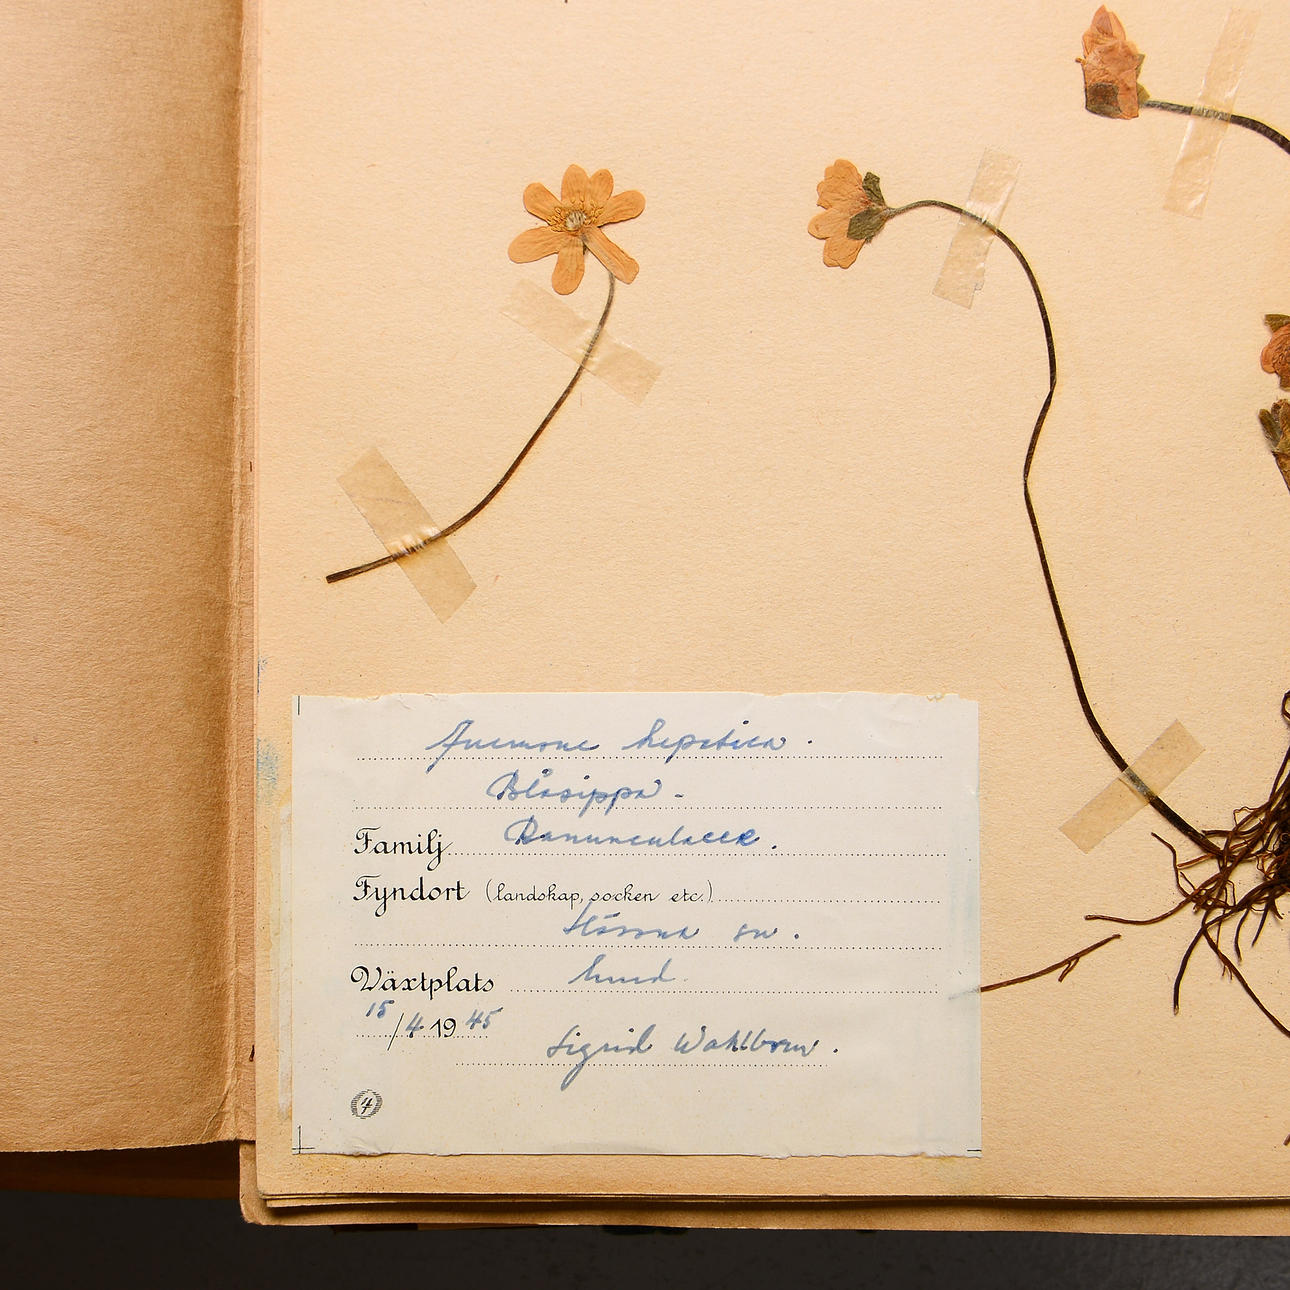 Anemone hepatica.
Blåsippa.
Familj Ranunculaceæ.
Fyndort (landskap, socken etc.)
sn.
Växtplats lund.
15/4 1945
Sigrid Wahlbom.
4